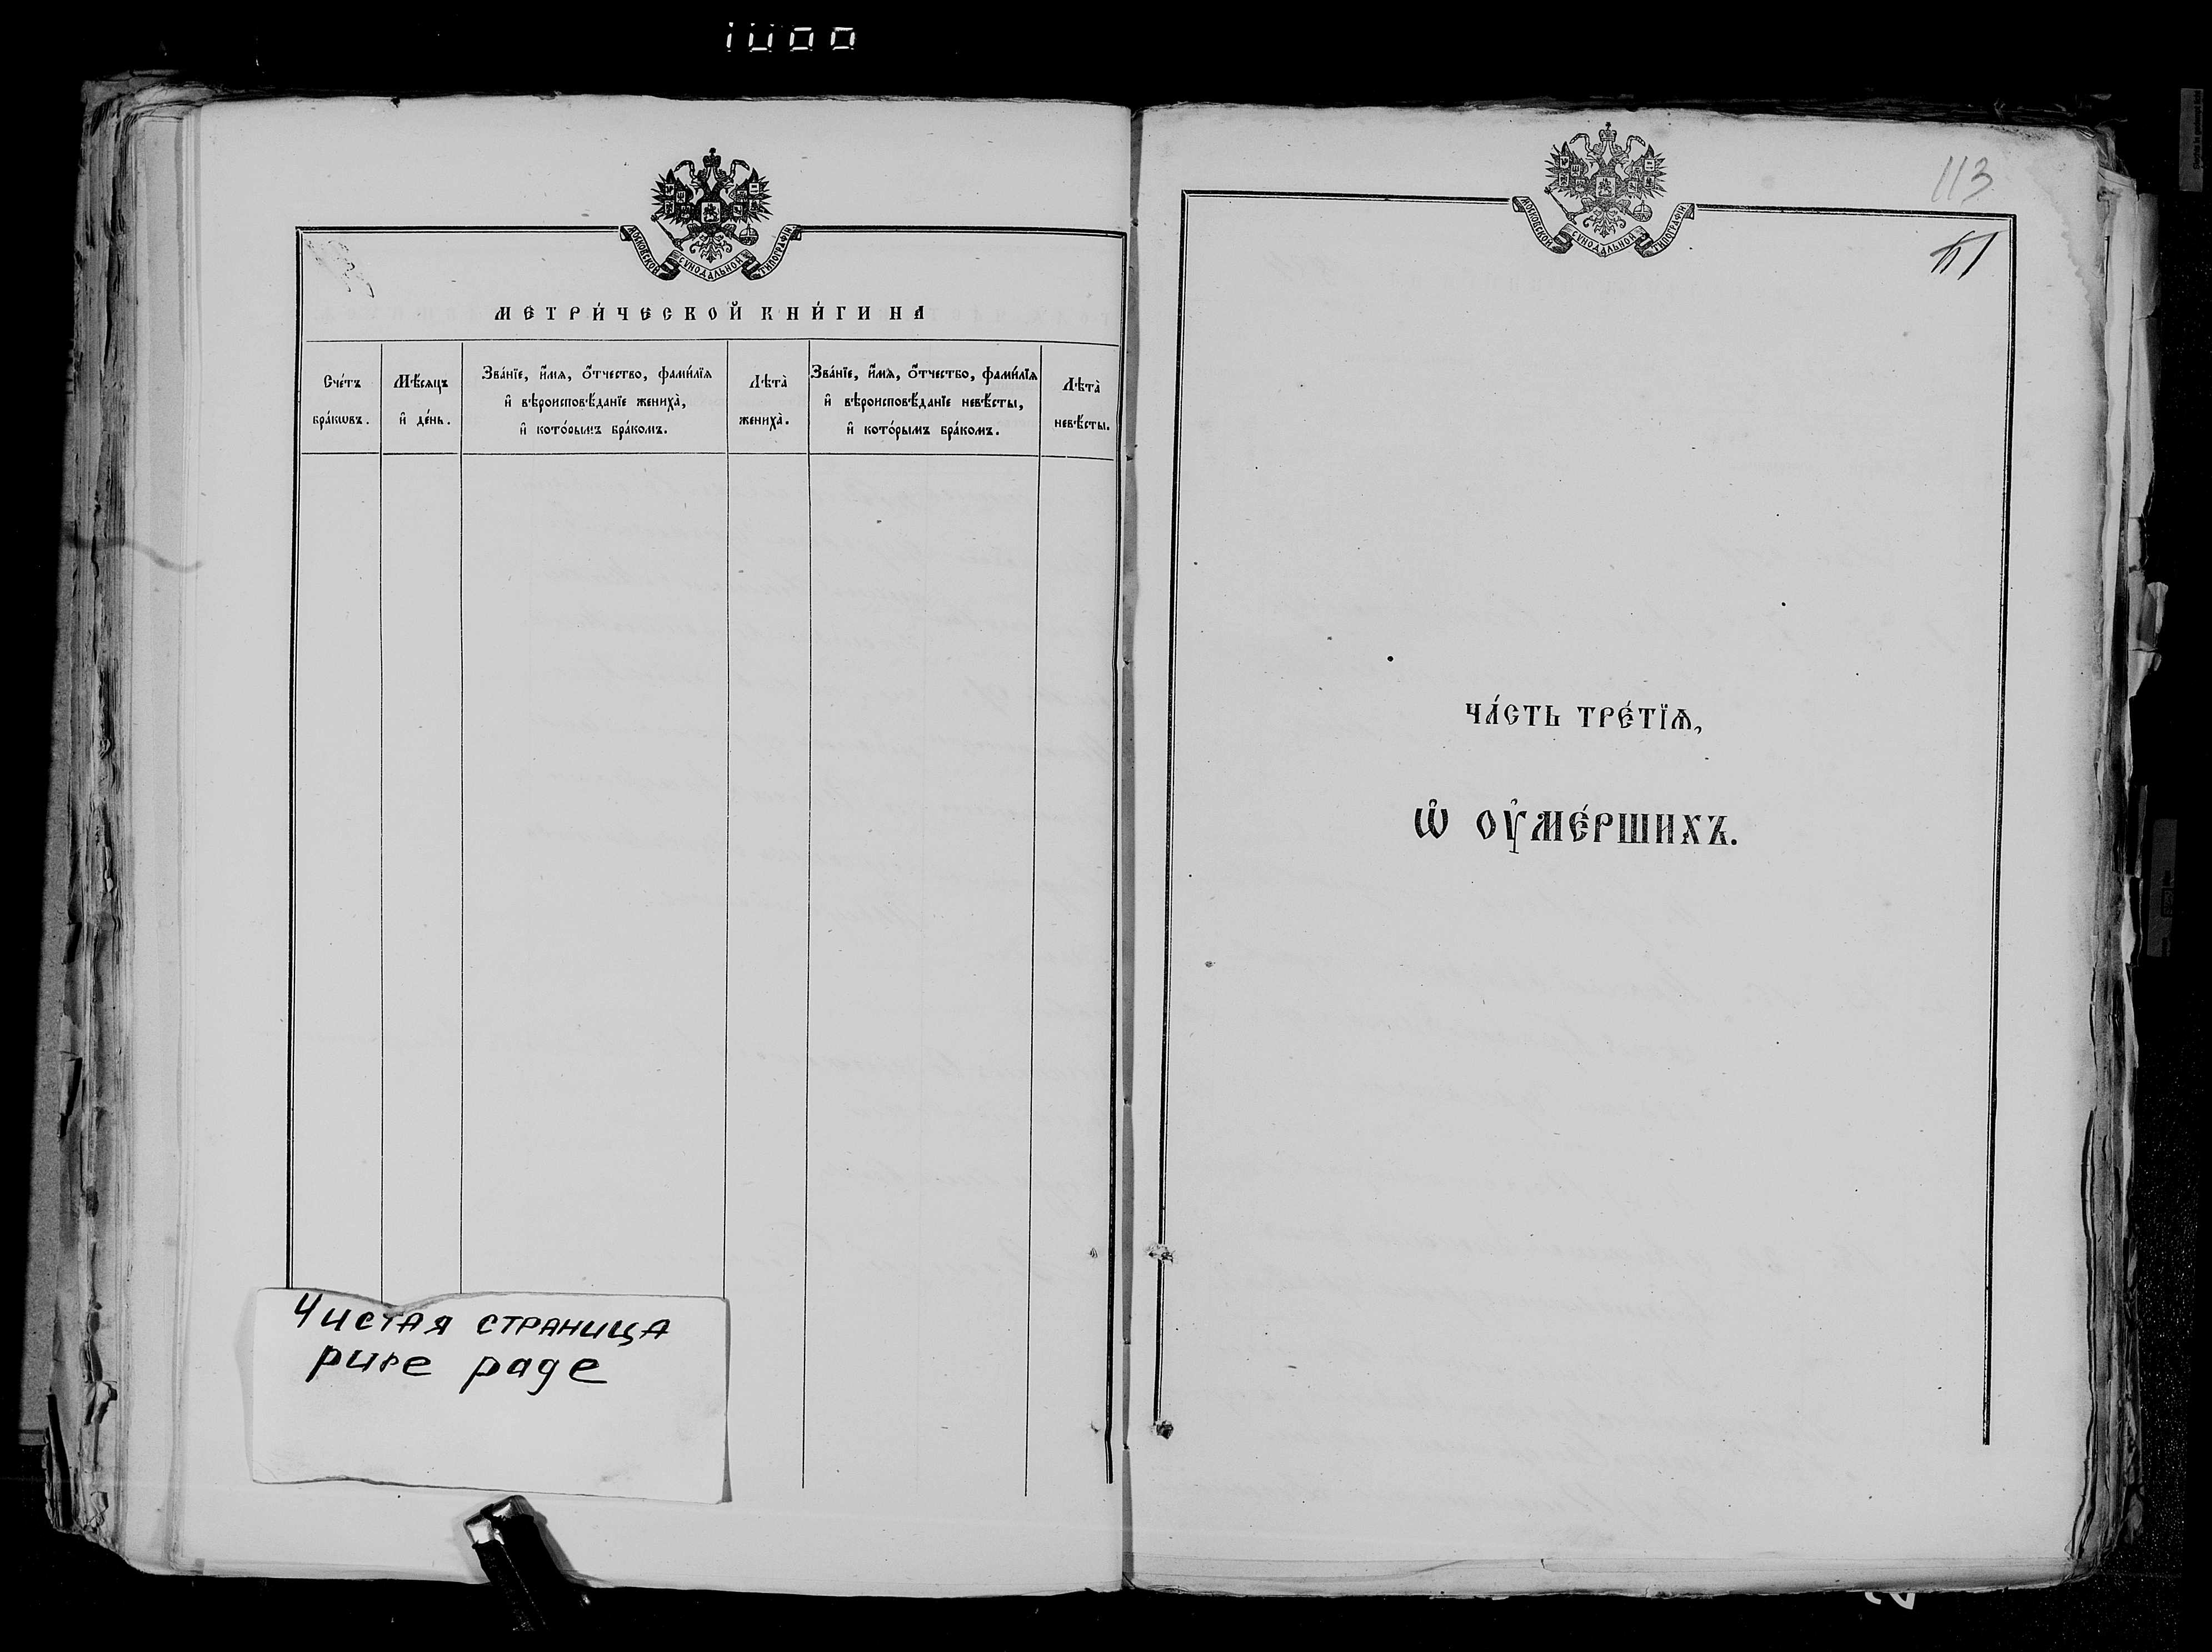 МОСКОВСКОЙ СѴНОДАЛЬНОЙ ТИПОГРАФІИ
МЕТРИ́ЧЕСКОЙ КНИ́ГИ НА
Сче́тъ бра́кѡвъ.
Мѣ́сяцъ и҆ де́нь.
Зва́нїе, и҆́мѧ, ѻ҆́тчество, фамі́лїѧ
и҆ вѣроисповѣ́данїе жениха̀,
и҆ кото́рымъ бра́комъ.
Лѣта̀
жениха̀.
Зва́нїе, и҆́мѧ, ѻ҆́тчество, фамі́лїѧ
и҆ вѣроисповѣ́данїе невѣ́сты,
и҆ кото́рымъ бра́комъ.
Лѣта̀
невѣ́сты.
Чистая страница
pure page
113
МОСКОВСКОЙ СѴНОДАЛЬНОЙ ТИПОГРАФІИ
ЧА́СТЬ ТРЕ́ТЇѦ,
Ѽ ОУ҆МЕ́РШИХЪ.